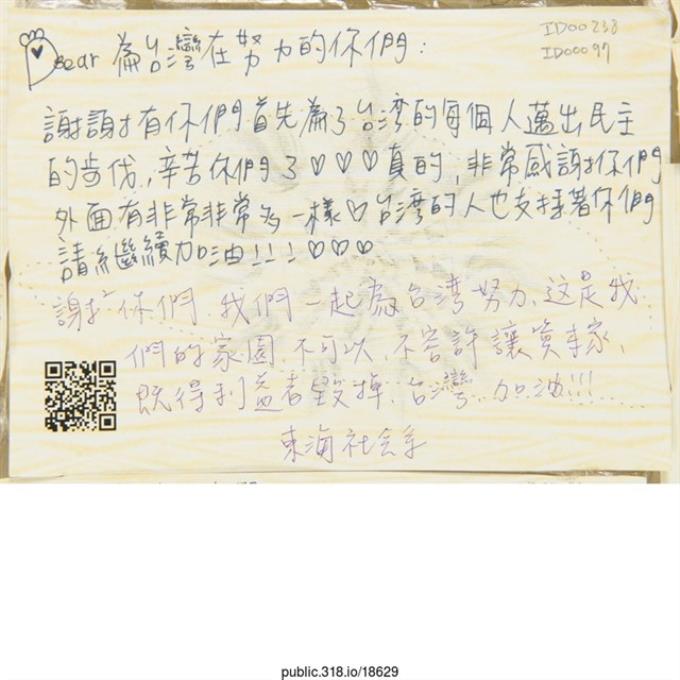 Dear 為台灣在努力的你們：
ID00238
ID00097
謝謝有你們首先為了台湾的每個人邁出民主
的步伐，辛苦你們了♡♡♡真的，非常感謝你們
外面有非常非常多一樣♡台湾的人也支持著你們
請繼續加油!!!♡♡♡
謝謝你們 我們一起為台湾努力、这是我
們的家園 不可以、不容許讓資本家、
既得利益者毀掉、台灣 加油!!!
東海社会系
public.318.io/18629